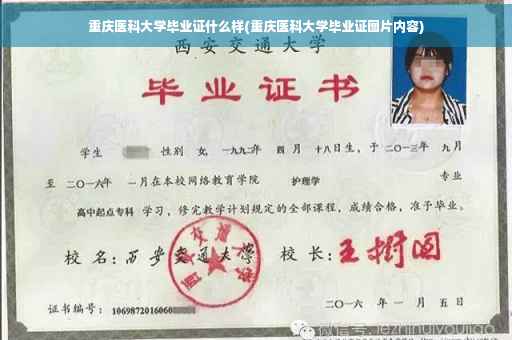 重庆医科大学毕业证什么样(重庆医科大学毕业证图片内容)
西安交通大学
毕业证书
学生 性别 女，一九九二年 四月 十八日生，于二〇一三年 九月
至 二〇一六年 一月在本校网络教育学院 护理学 专业
高中起点专科 学习，修完教学计划规定的全部课程，成绩合格，准予毕业。
校 名：西安交通大学 校 长：王树国
西安交通大学
证书编号：1069872016060
二〇一六 年 一 月 五 日
微信号: jezhinuiyoujiao